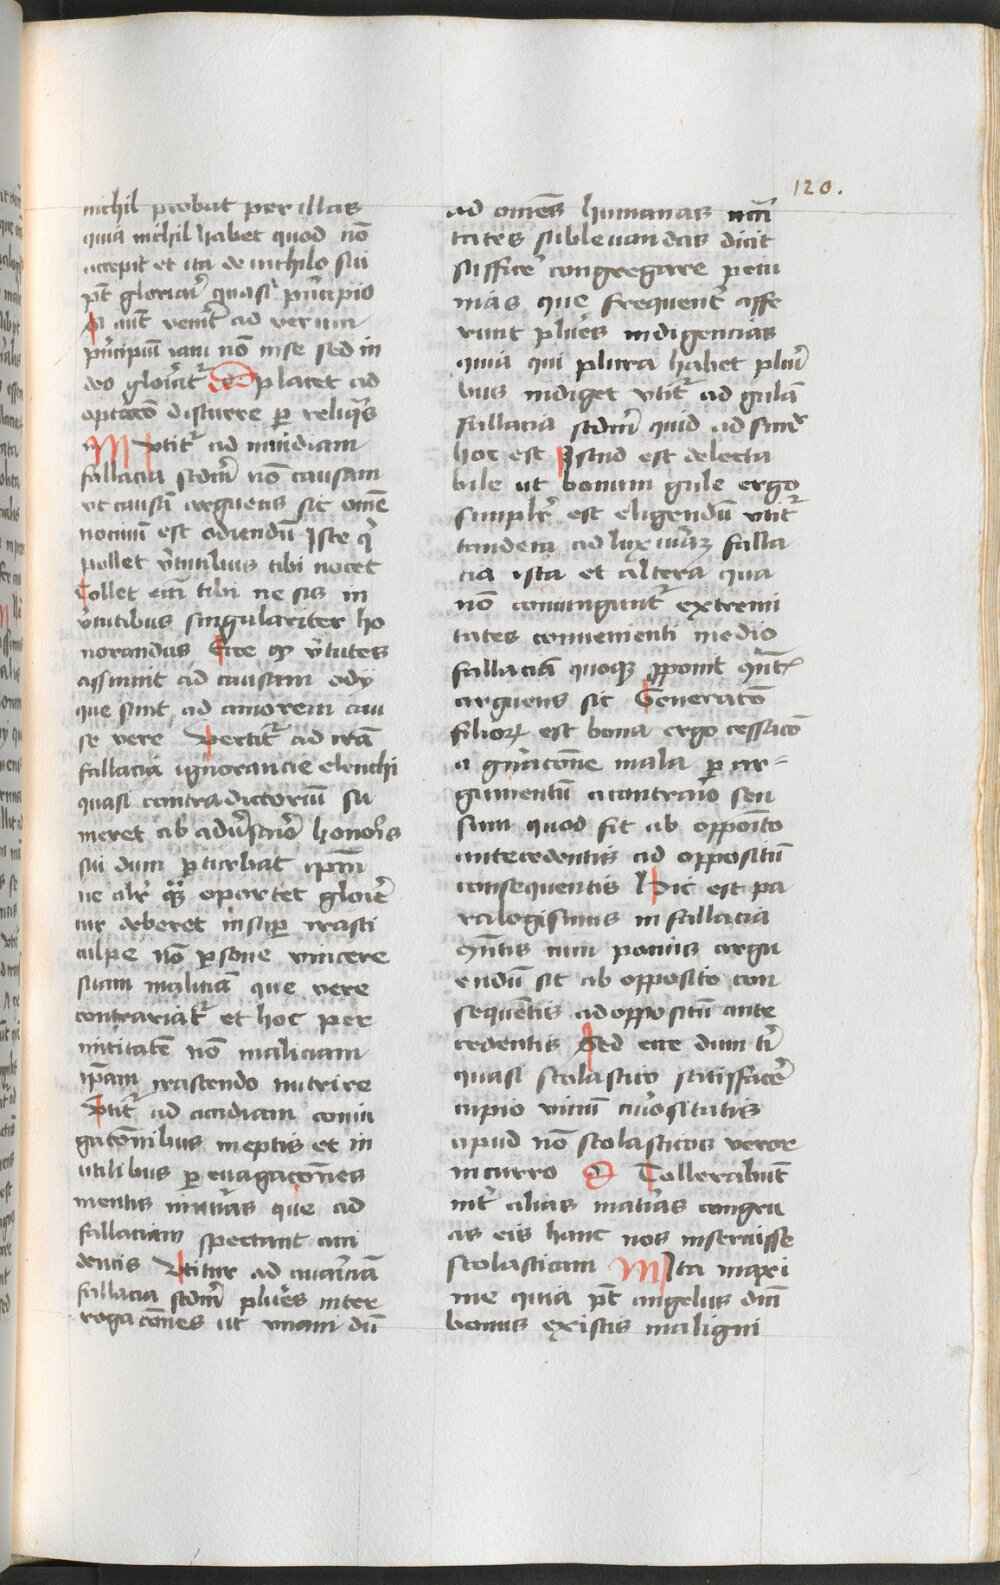 120.
nichil probat per illas
quia nichil habet quod nō
accepit et ita de nichilo sui
pt̄ gloriari quasi pn̄cipio
Si aut̄ venit̄ ad verum
pn̄cipiū iam nō in se sed in
deo gloriat᷑ D placet ad
optatō discurre p reliq̄s
M Vtit᷑ ad inuidiam
fallacia scdm̄ nō causam
vt causā arguens sic om̄e
nociuū est odiendū Iste q̄
pollet v̄tutibus tibi nocet
Tollet em̄ tibi ne sis in
v̄tutibus singulariter ho
norandus Ecce q v̄tutes
assumit ad causam ody
que sunt ad amorem cau
se vere Vertit᷑ ad irā
fallacia ignorancie elenchi
quasi contradictoriū su
meret ab adūsario honor̄s
sui dum pturbat ip̄m
ne alr̄ oportet
tur deberet insup irasci
culpe nō psone vincere
suam maliciā que vere
contrariat᷑ et hoc per
mititatē nō maliciam
ip̄am irascendo nutrire
Vtit᷑ ad accidiam coniu
gatōnibus ineptis et in
utilibus p euagacōnes
mentis que ad
fallaciam spectant acci
dentis Vtitur ad auariciā
fallacia scdm̄ plures inter
rogacōnes ut vnam dū
ad om̄es humanas
tates subleuandas dicit
sufficē congregare pecu
nias que frequent̄ affe
runt plures indigencias
quia qui plura habet plur̄
bus indiget vtit᷑ ad gulā
fallacia scdm̄ quid ad simpᷓ
hoc est Istud est delecta
bile ut bonum gule ergo
simplr̄ est eligendū vtit᷑
tandem ad luxuriaȝ falla
cia ista et altera qua
nō coniungunt᷑ extremi
tates conuenienti medio
fallaciā quoqȝ pponit
arguens sic Generatō
filioꝝ est bona ergo cessacō
a gn̄acōne mala p ar=
gumentū acontrario sen
sum quod fit ab opposito
antecedentis ad oppositū
consequentis Hic est pa
ralogismus in fallacia
qn̄tis cum pocius argu
endū sit ab opposito con
sequentis ad oppositū ante
cedentis Sed ecce dum ti
quasi scolastico satisfacē
cupio viciū curiositatis
apud nō scolasticos vereor
incurro D Tollerabunt
int̄ alias materias congru
as eis hanc nos inseruisse
scolasticam M Ita maxi
me quia pt̄ angelus dum
bonus existis maligni